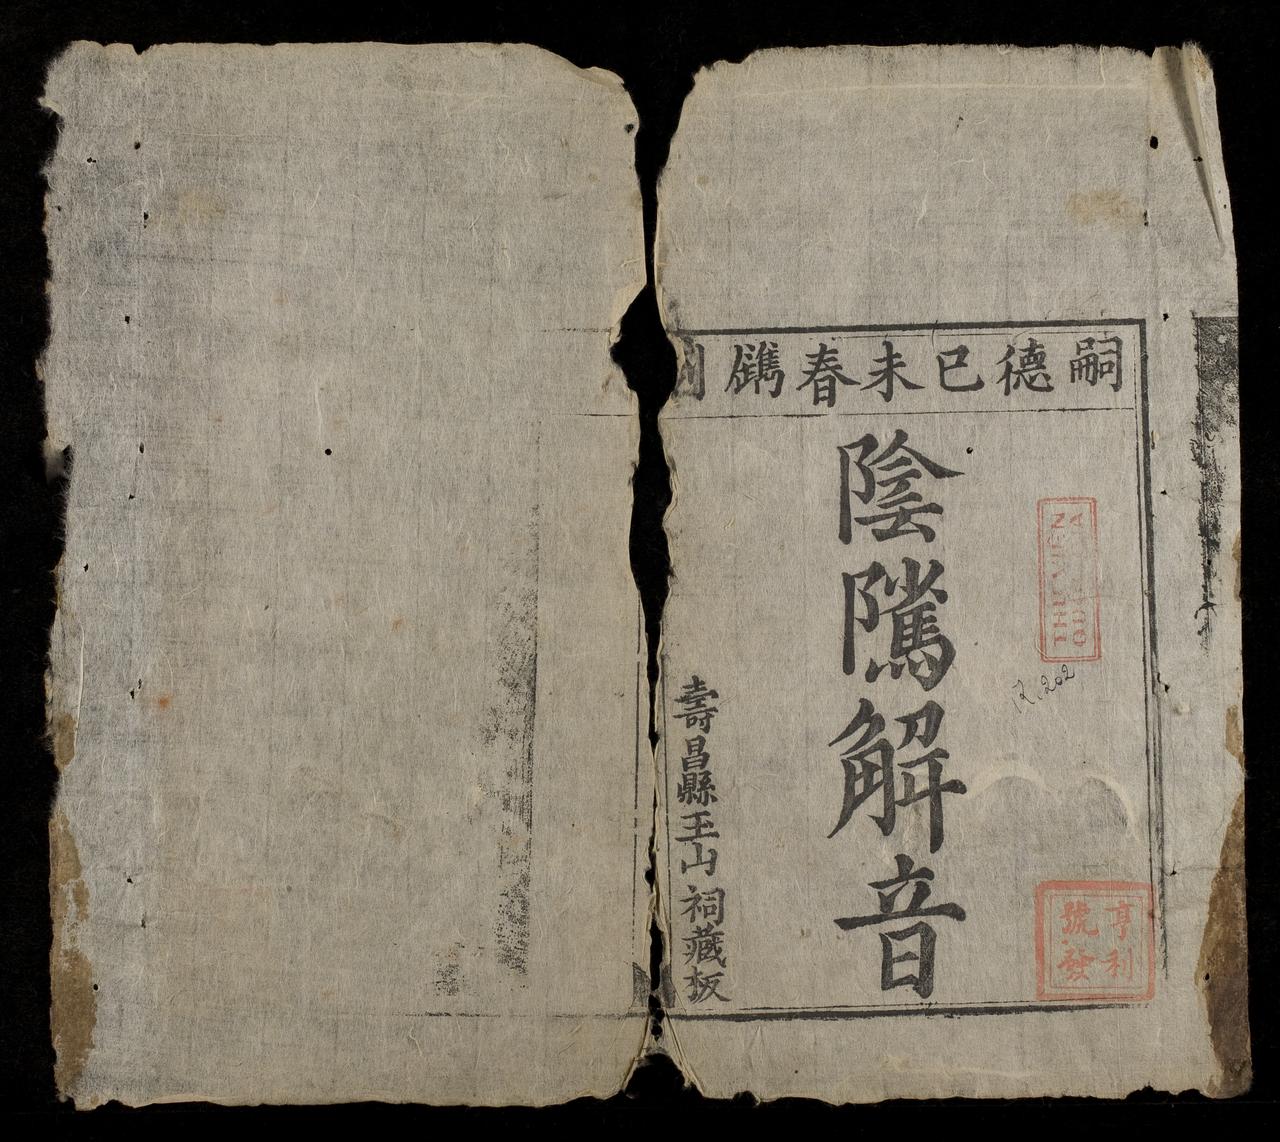 嗣德己未春鐫
陰隲解音
壽昌縣玉山祠藏板
THƯ VIỆN
R.202
亨利
號發